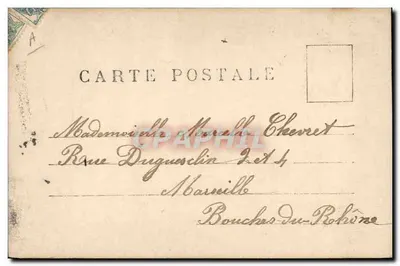 A
CARTE POSTALE
Mademoiselle Marcelle Chevret
Rue Duguesclin 2 et 4
CPAPHIL
Marseille
Bouches-du-Rhône